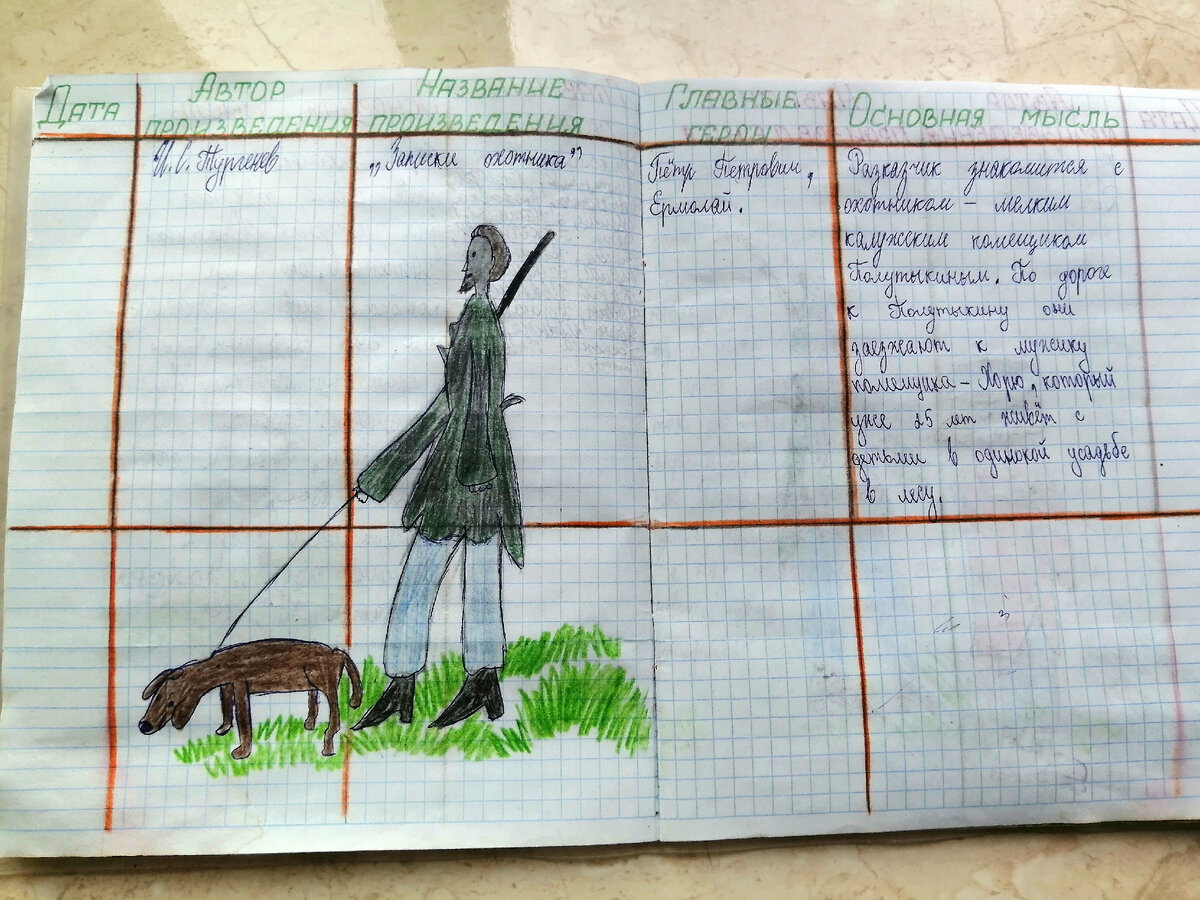 ДАТА
АВТОР
ПРОИЗВЕДЕНИЯ
НАЗВАНИЕ
ПРОИЗВЕДЕНИЯ
ГЛАВНЫЕ
ГЕРОИ
ОСНОВНАЯ МЫСЛЬ
И. С. Тургенев
„Записки охотника”
Пётр Петрович,
Ермолай.
Разказчик знакомится с
охотником – мелким
калужским помещиком
Полутыкиным. По дороге
к Полутыкину они
заезжают к мужику
помещика – Хорю, который
уже 25 лет живёт с
детьми в одинокой усадьбе
в лесу.